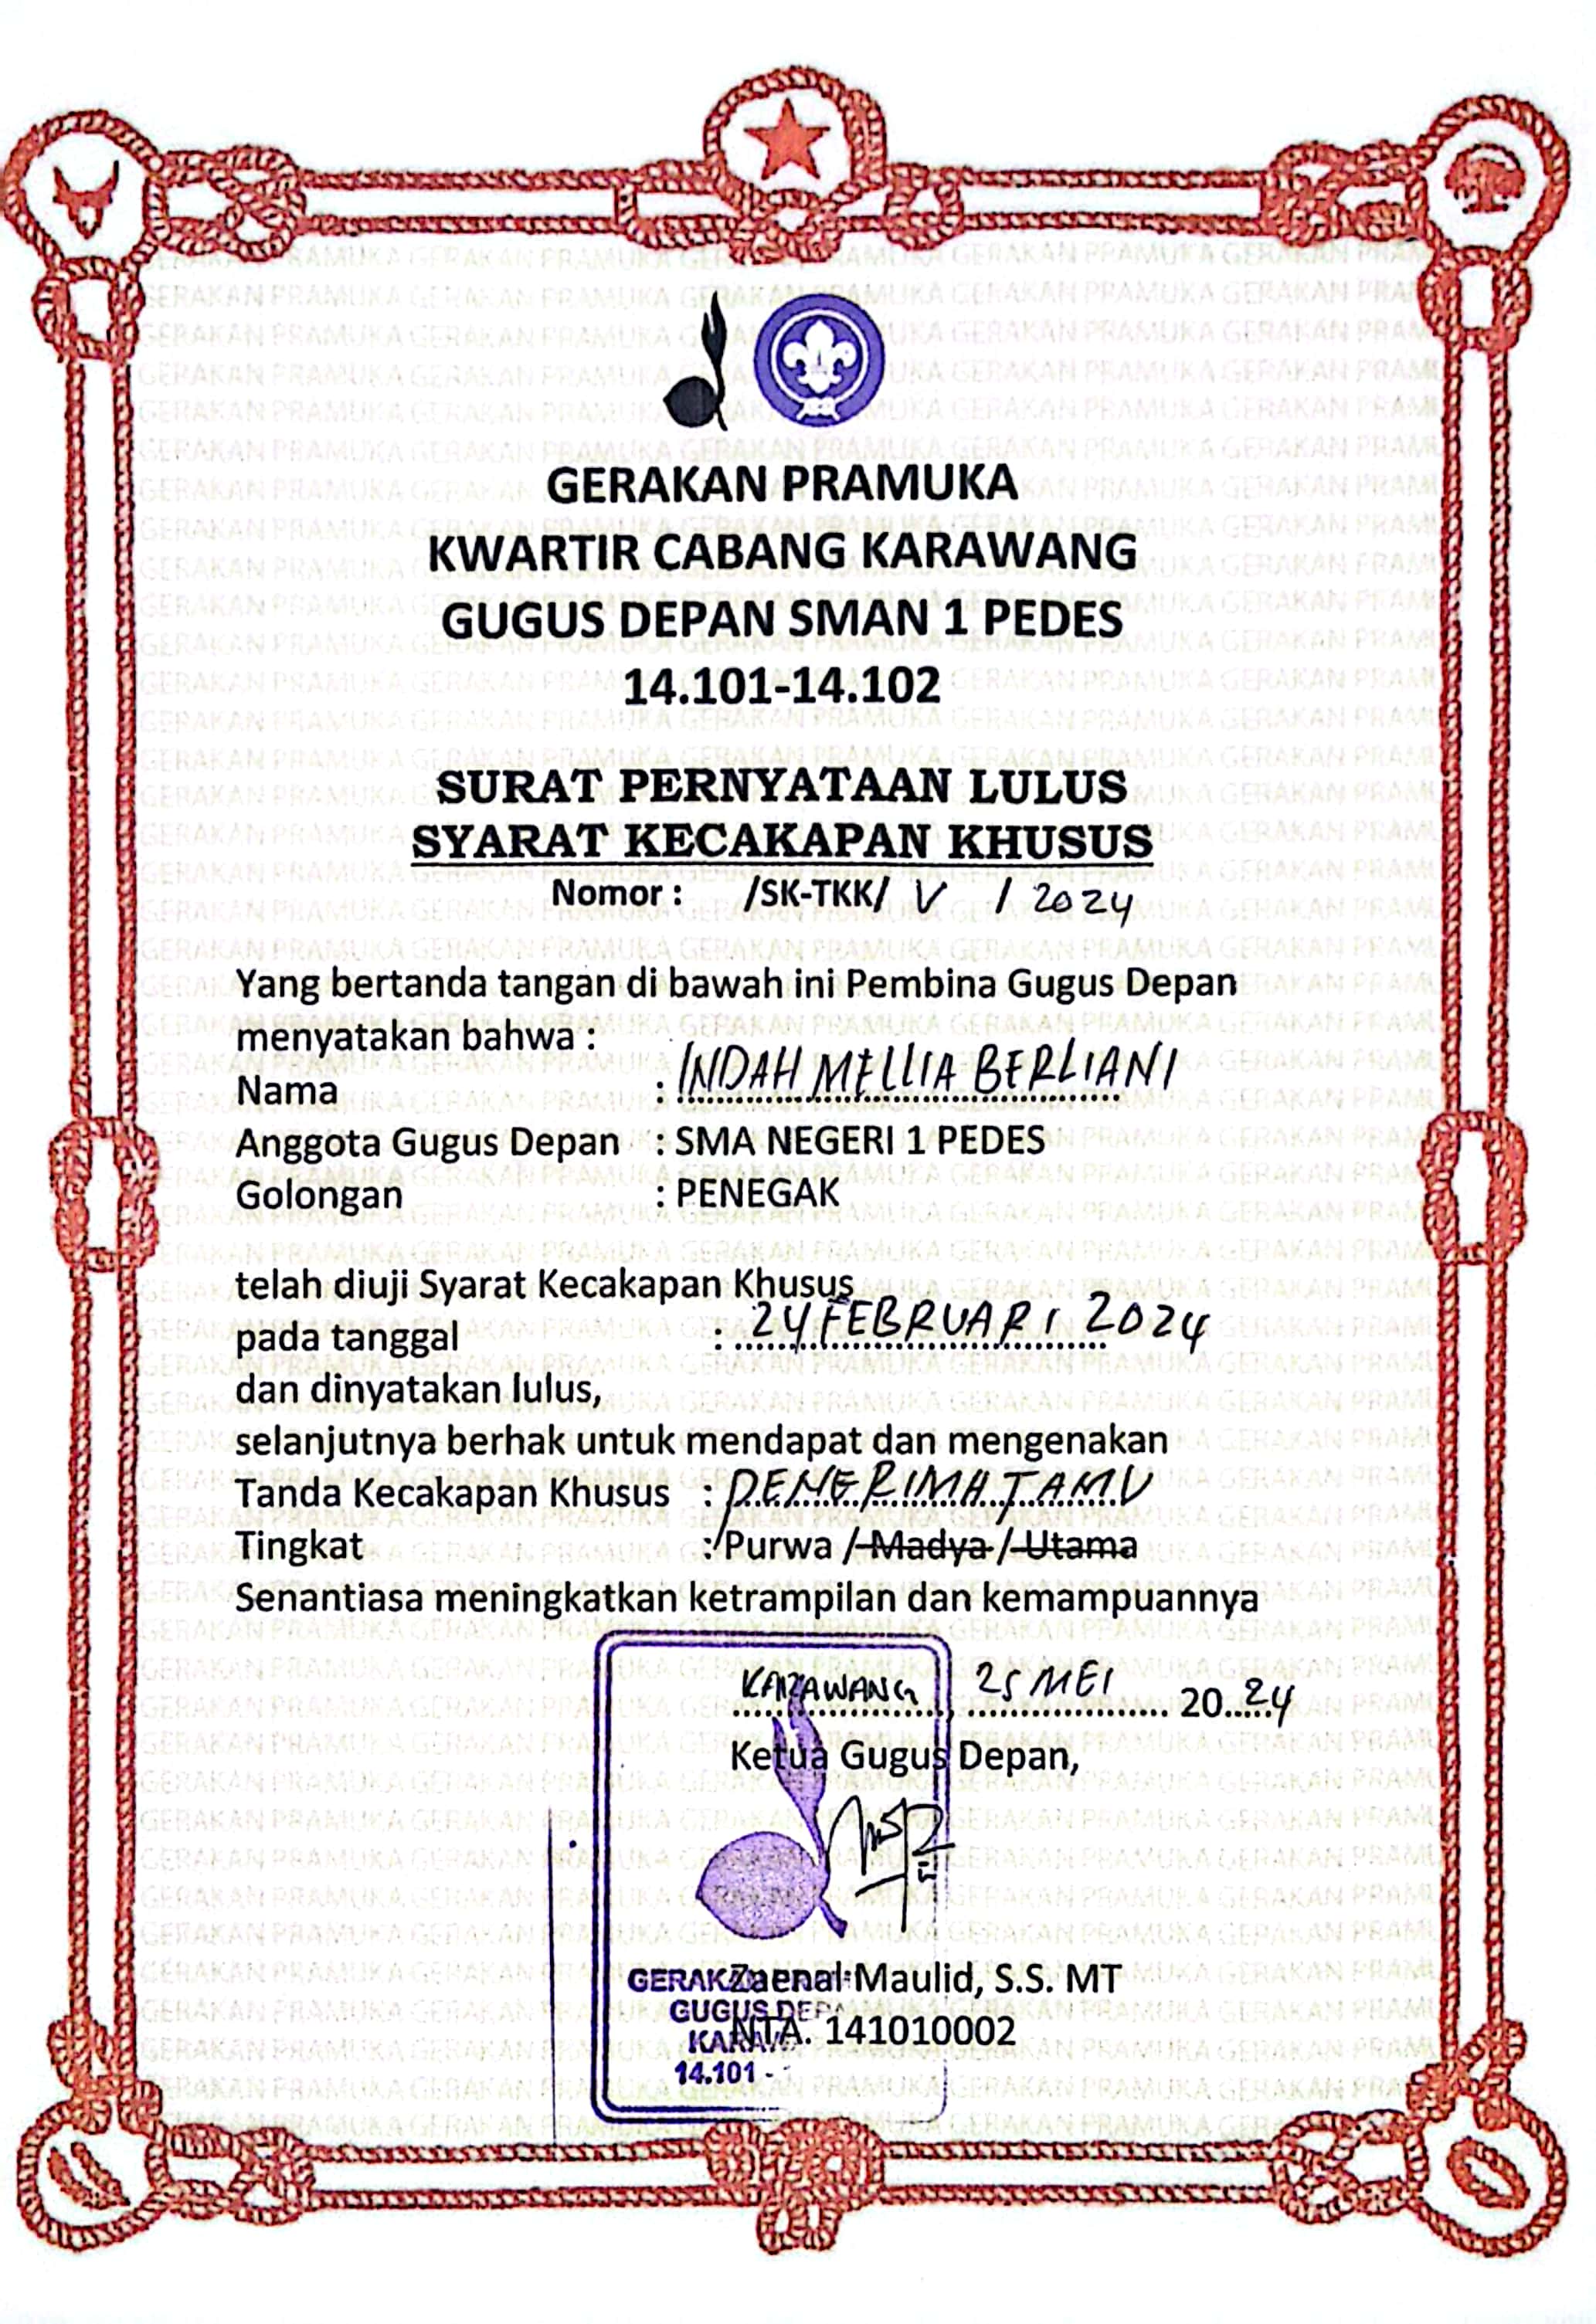 GERAKAN PRAMUKA
KWARTIR CABANG KARAWANG
GUGUS DEPAN SMAN 1 PEDES
14.101-14.102
SURAT PERNYATAAN LULUS
SYARAT KECAKAPAN KHUSUS
Nomor : /SK-TKK/ V / 2024
Yang bertanda tangan di bawah ini Pembina Gugus Depan
menyatakan bahwa :
Nama : INDAH MELLIA BERLIANI
Anggota Gugus Depan : SMA NEGERI 1 PEDES
Golongan : PENEGAK
telah diuji Syarat Kecakapan Khusus
pada tanggal : 24 FEBRUARI 2024
dan dinyatakan lulus,
selanjutnya berhak untuk mendapat dan mengenakan
Tanda Kecakapan Khusus : PENERIMA TAMU
Tingkat : Purwa / Madya / Utama
Senantiasa meningkatkan ketrampilan dan kemampuannya
KARAWANG, 25 MEI 2024
Ketua Gugus Depan,
Zaenal Maulid, S.S. MT
NTA. 141010002
GUGUS DEPA
14.101 -